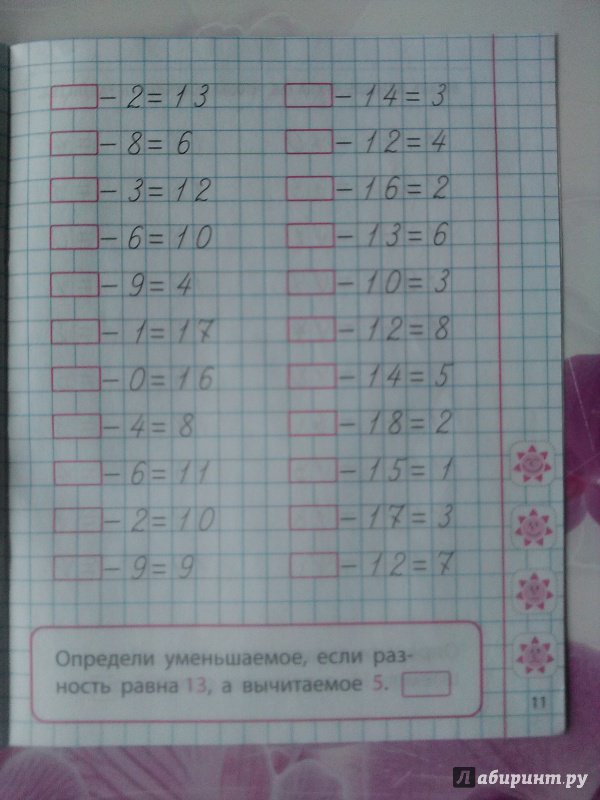 − 2 = 13
− 8 = 6
− 3 = 12
− 6 = 10
− 9 = 4
− 1 = 17
− 0 = 16
− 4 = 8
− 6 = 11
− 2 = 10
− 9 = 9
− 14 = 3
− 12 = 4
− 16 = 2
− 13 = 6
− 10 = 3
− 12 = 8
− 14 = 5
− 18 = 2
− 15 = 1
− 17 = 3
− 12 = 7
Определи уменьшаемое, если раз-
ность равна 13, а вычитаемое 5.
11
Лабиринт.ру